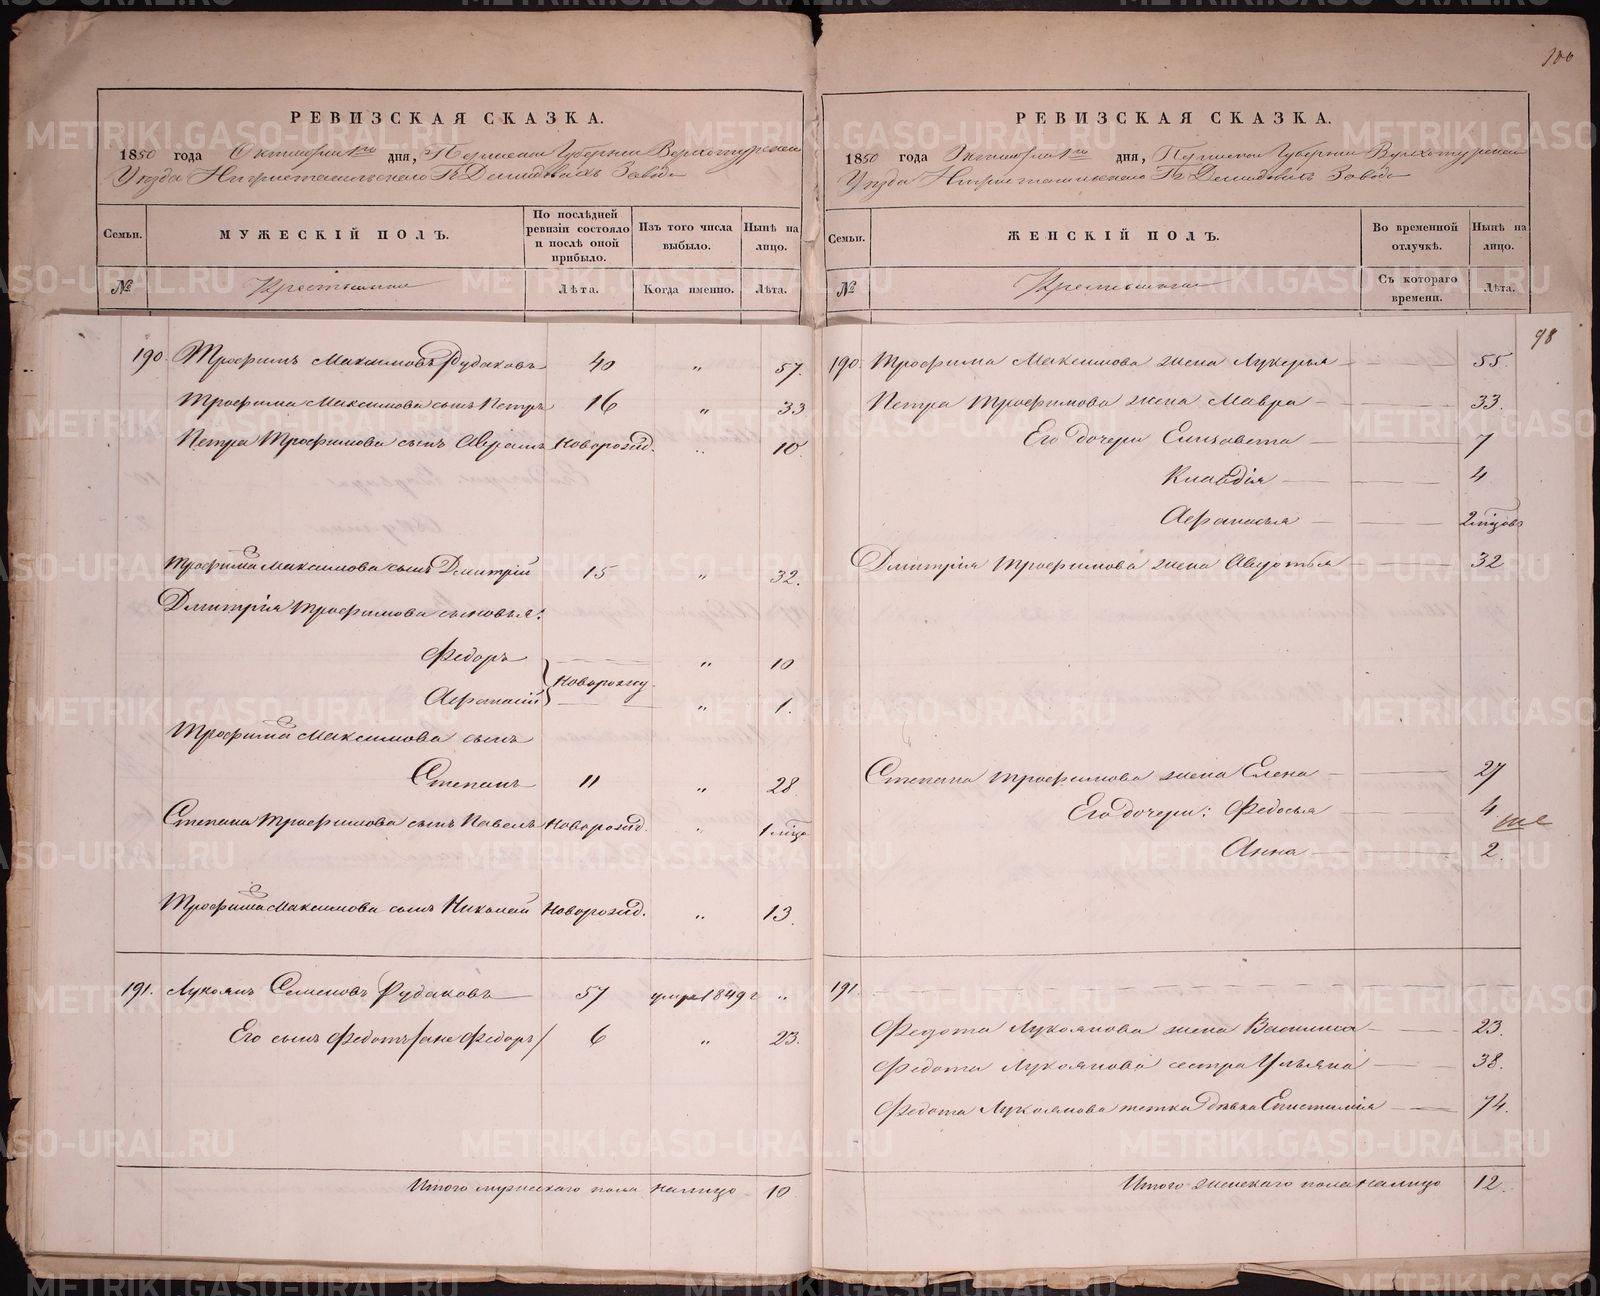 100
РЕВИЗСКАЯ СКАЗКА.
1850 года Октября 1го дня, Пермской Губернии Верхотурскаго
Уезда Нижнетагильскаго Гг Демидовыхъ Завода
Семьи.
МУЖЕСКІЙ ПОЛЪ.
По послѣдней ревизіи состояло и послѣ оной прибыло.
Изъ того числа выбыло.
Нынѣ на лицо.
№
Крестьяне
Лѣта.
Когда именно.
Лѣта.
190. Трофимъ Максимовъ Рудаковъ 40 " 57.
Трофима Максимова сынъ Петръ 16 " 33
Петра Трофимова сынъ Абрамъ Новорожд. " 10.
Трофима Максимова сынъ Дмитрій 15 " 32.
Дмитрія Трофимова сыновья:
Федоръ " 10
Новорожд.
Афанасій " 1.
Трофима Максимова сынъ
Степанъ 11 " 28.
Степана Трофимова сынъ Павелъ Новорожд. " 1 мца
Трофима Максимова сынъ Николай Новорожд. " 13.
191. Лукоянъ Семеновъ Рудаковъ 57 умре 1849 г "
Его сынъ Федотъ /а не Федоръ/ 6 " 23.
Итого мужескаго пола налицо 10
РЕВИЗСКАЯ СКАЗКА.
1850 года Октября 1го дня, Пермской Губернии Верхотурскаго
Уезда Нижнетагильскаго Гг Демидовыхъ Завода
Семьи.
ЖЕНСКІЙ ПОЛЪ.
Во временной отлучкѣ.
Нынѣ на лицо.
№
Крестьяне
Съ котораго времени.
Лѣта.
98
190. Трофима Максимова жена Лукерья 55.
Петра Трофимова жена Мавра 33.
Его дочери Елизавета 7
Клавдія 4
Афанасья 2 мцовъ
Дмитрія Трофимова жена Авдотья 32
Степана Трофимова жена Елена 27
Его дочери: Федосья 4
Анна 2.
191.
Федота Лукоянова жена Василиса 23.
Федота Лукоянова сестра Ульяна 38.
Федота Лукоянова тетка дѣвка Епистимія 74.
Итого женскаго пола налицо 12.
METRIKI.GASO-URAL.RU